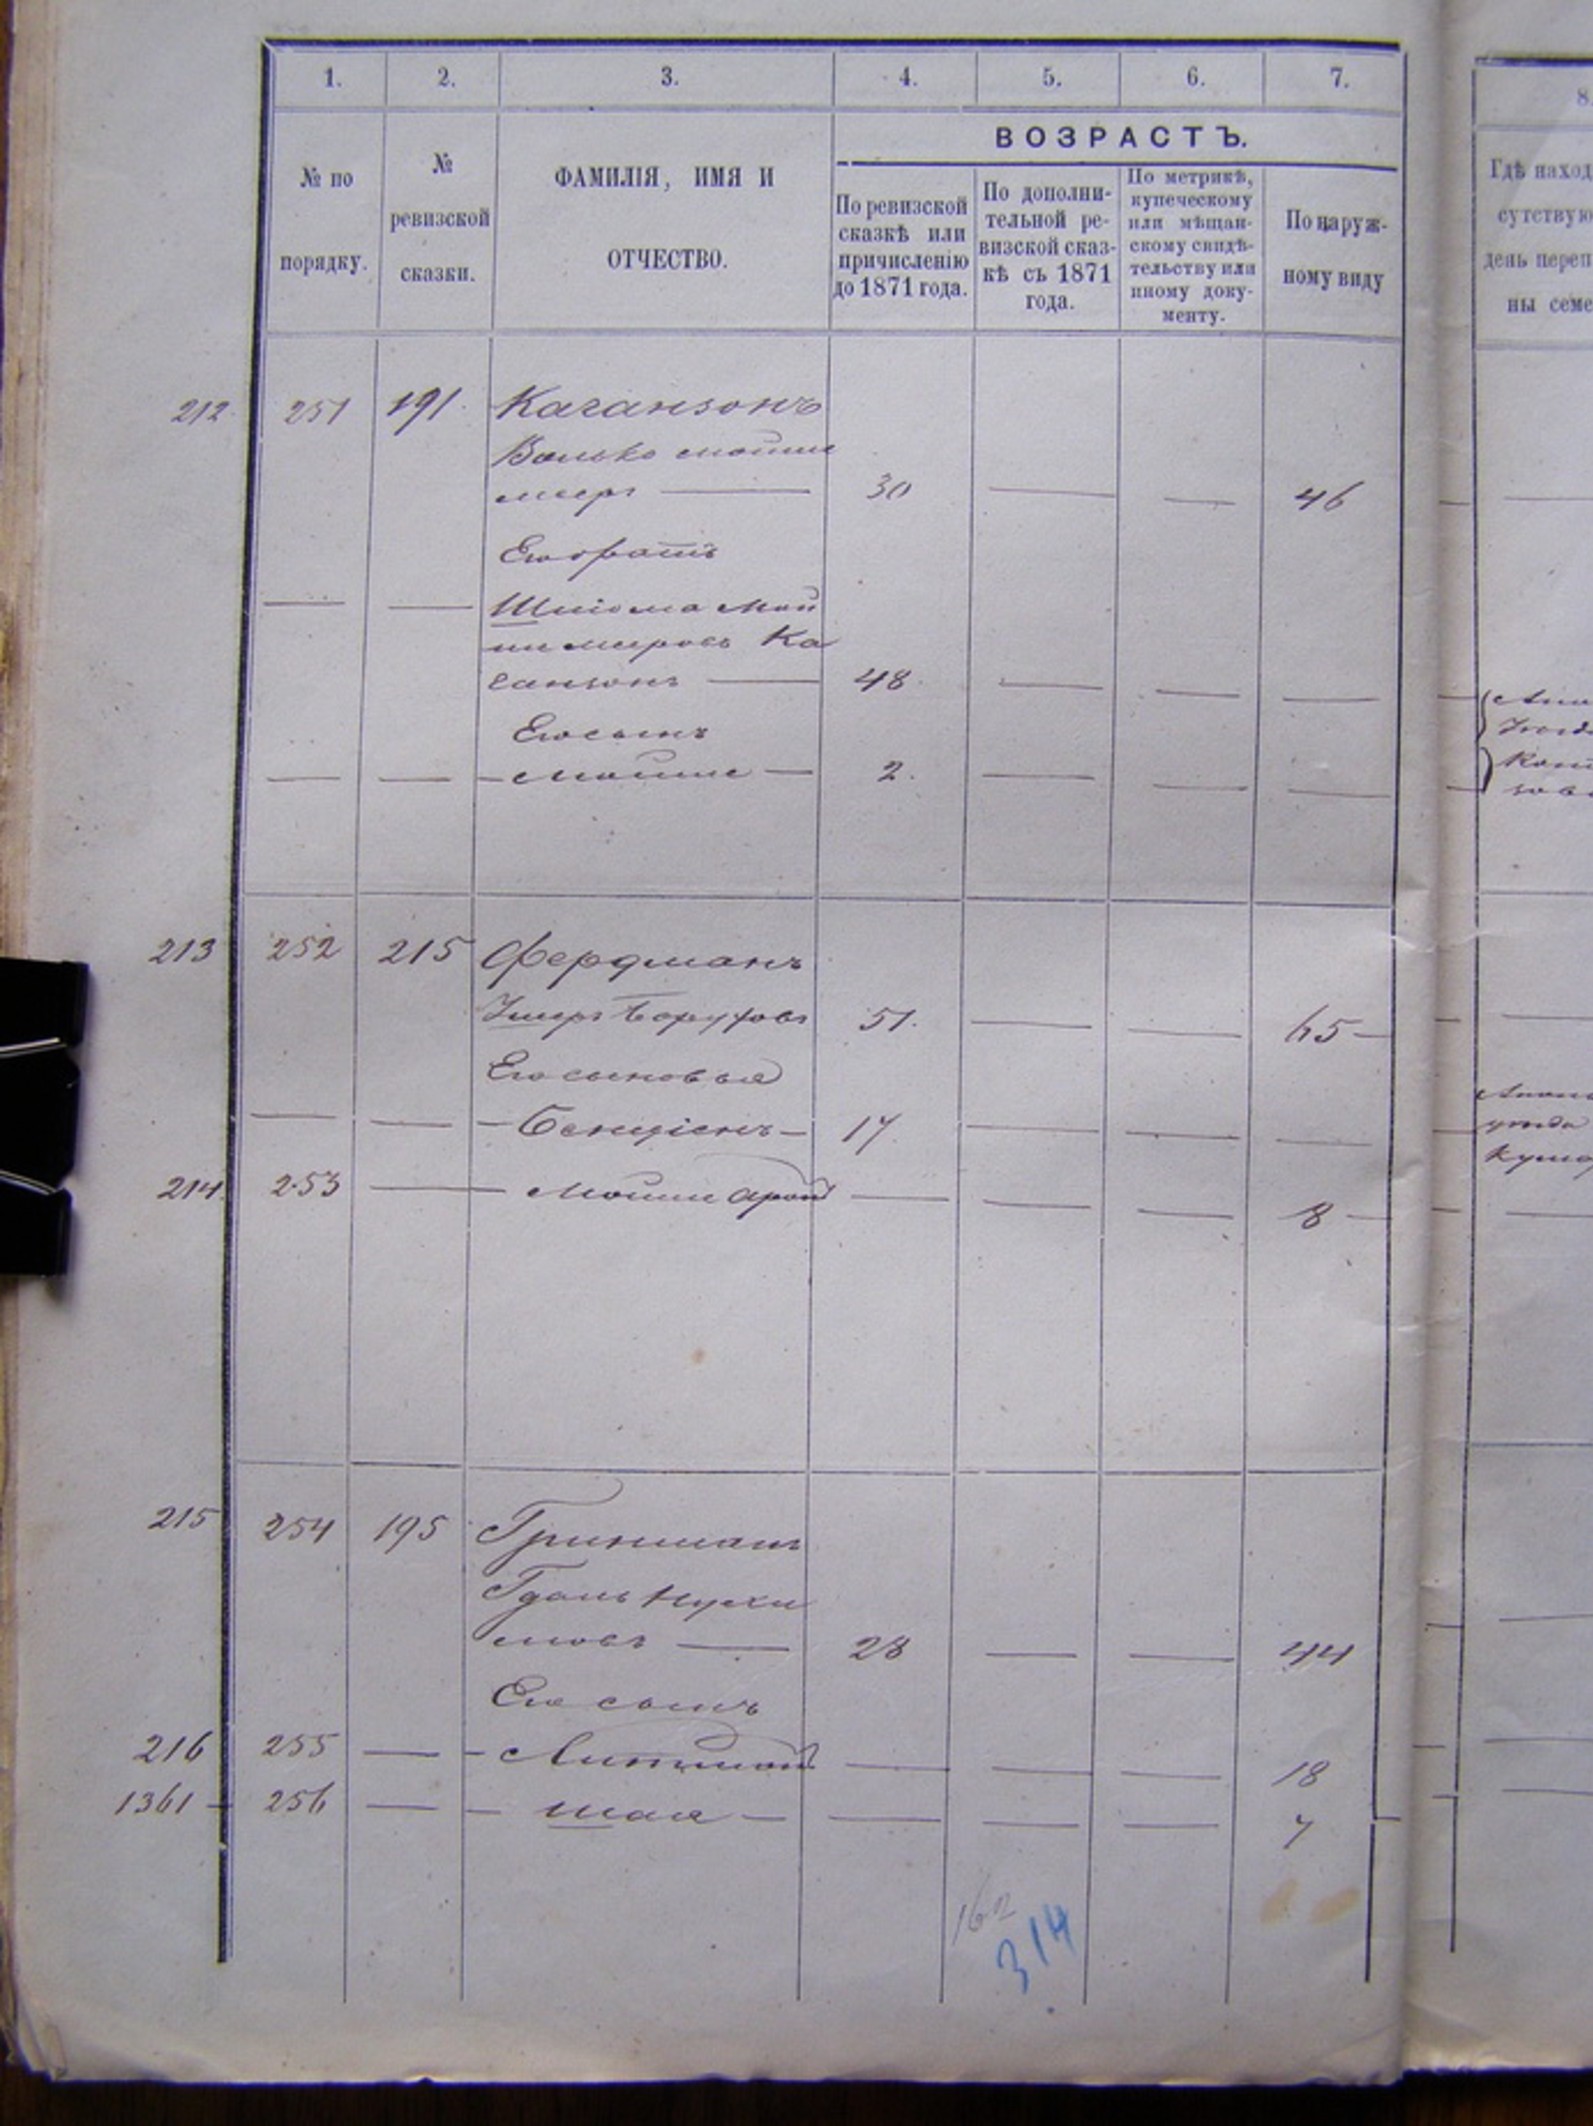 1. 2. 3. 4. 5. 6. 7.
8.
№ по
порядку.
№
ревизской
сказки.
ФАМИЛІЯ, ИМЯ И
ОТЧЕСТВО.
ВОЗРАСТЪ.
По ревизской
сказкѣ или
причисленію
до 1871 года.
По дополни-
тельной ре-
визской сказ-
кѣ съ 1871
года.
По метрикѣ,
купеческому
или мѣщан-
скому свидѣ-
тельству или
иному доку-
менту.
По наруж-
ному виду
Гдѣ наход
сутствую
день переп
ны семе
212 251 191 Кагансонъ
Волько Мойше
30 — — 46
Его братъ
— — Шліома Мой
ше меировъ Ка
гансонъ — 48 — — —
Его сынъ
— — — Мойше — 2. — — —
213 252 215 Фердманъ
Боруховъ 51. — — 65 —
Его сыновья
— — — Бенціонъ — 17. — — —
214 253 — Мойше Арон — — — 8 —
215 254 195 Гринманъ
Гдаль Нухи
мовъ — 28 — — 44
Его сынъ
216 255 — — — — — 18
1361 — 256 — — Шая — — — — 7
162
314